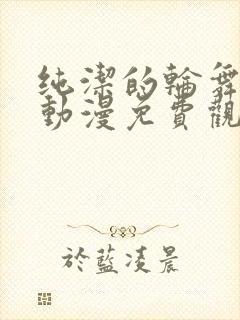 純潔的輪舞
動漫免費觀
於藍凌晨